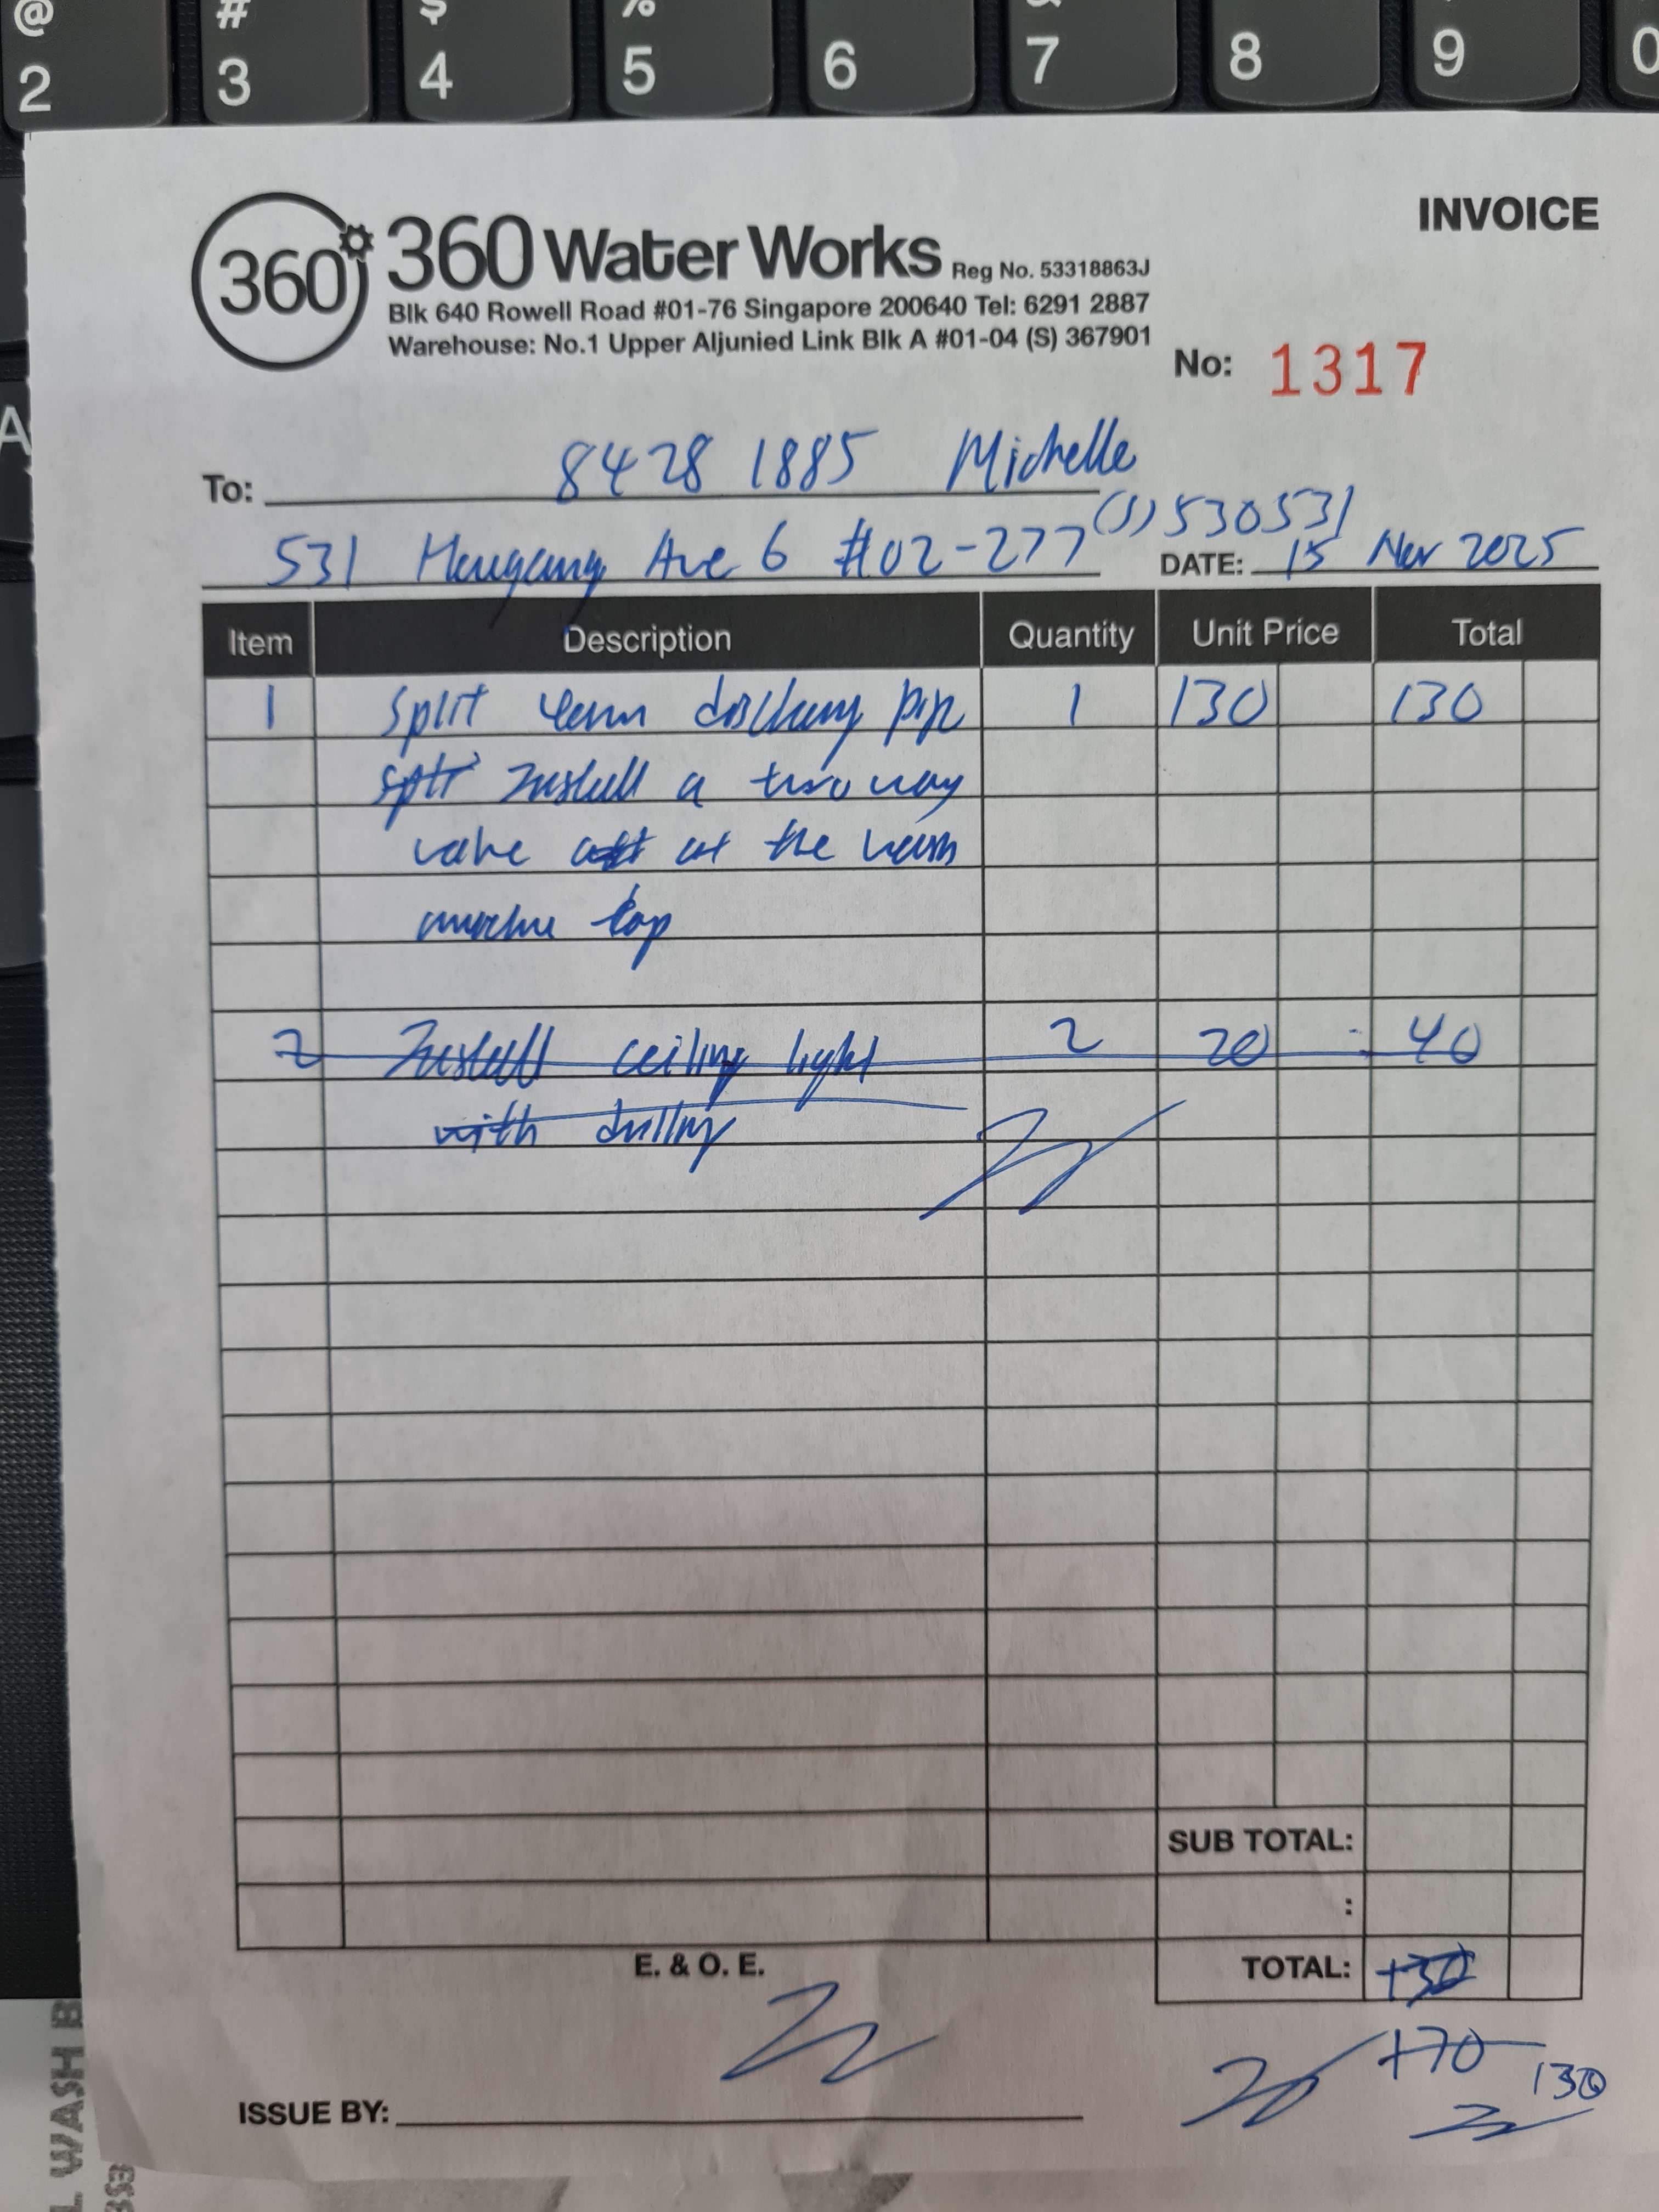 @ # $ %
2 3 4 5 6 7 8 9 0
A
INVOICE
360
360 Water Works Reg No. 53318863J
Blk 640 Rowell Road #01-76 Singapore 200640 Tel: 6291 2887
Warehouse: No.1 Upper Aljunied Link Blk A #01-04 (S) 367901
No: 1317
To: 8428 1885 Michelle
(S) 530531
531 Hougang Ave 6 #02-277 DATE: 15 Nov 2025
Item Description Quantity Unit Price Total
1 Split discharge pipe 1 130 130
Install a two way
valve at the
machine tap
2 Install ceiling light 2 20 40
with drilling
SUB TOTAL:
:
E. & O. E. TOTAL: 130
170
130
ISSUE BY:
L WASH B